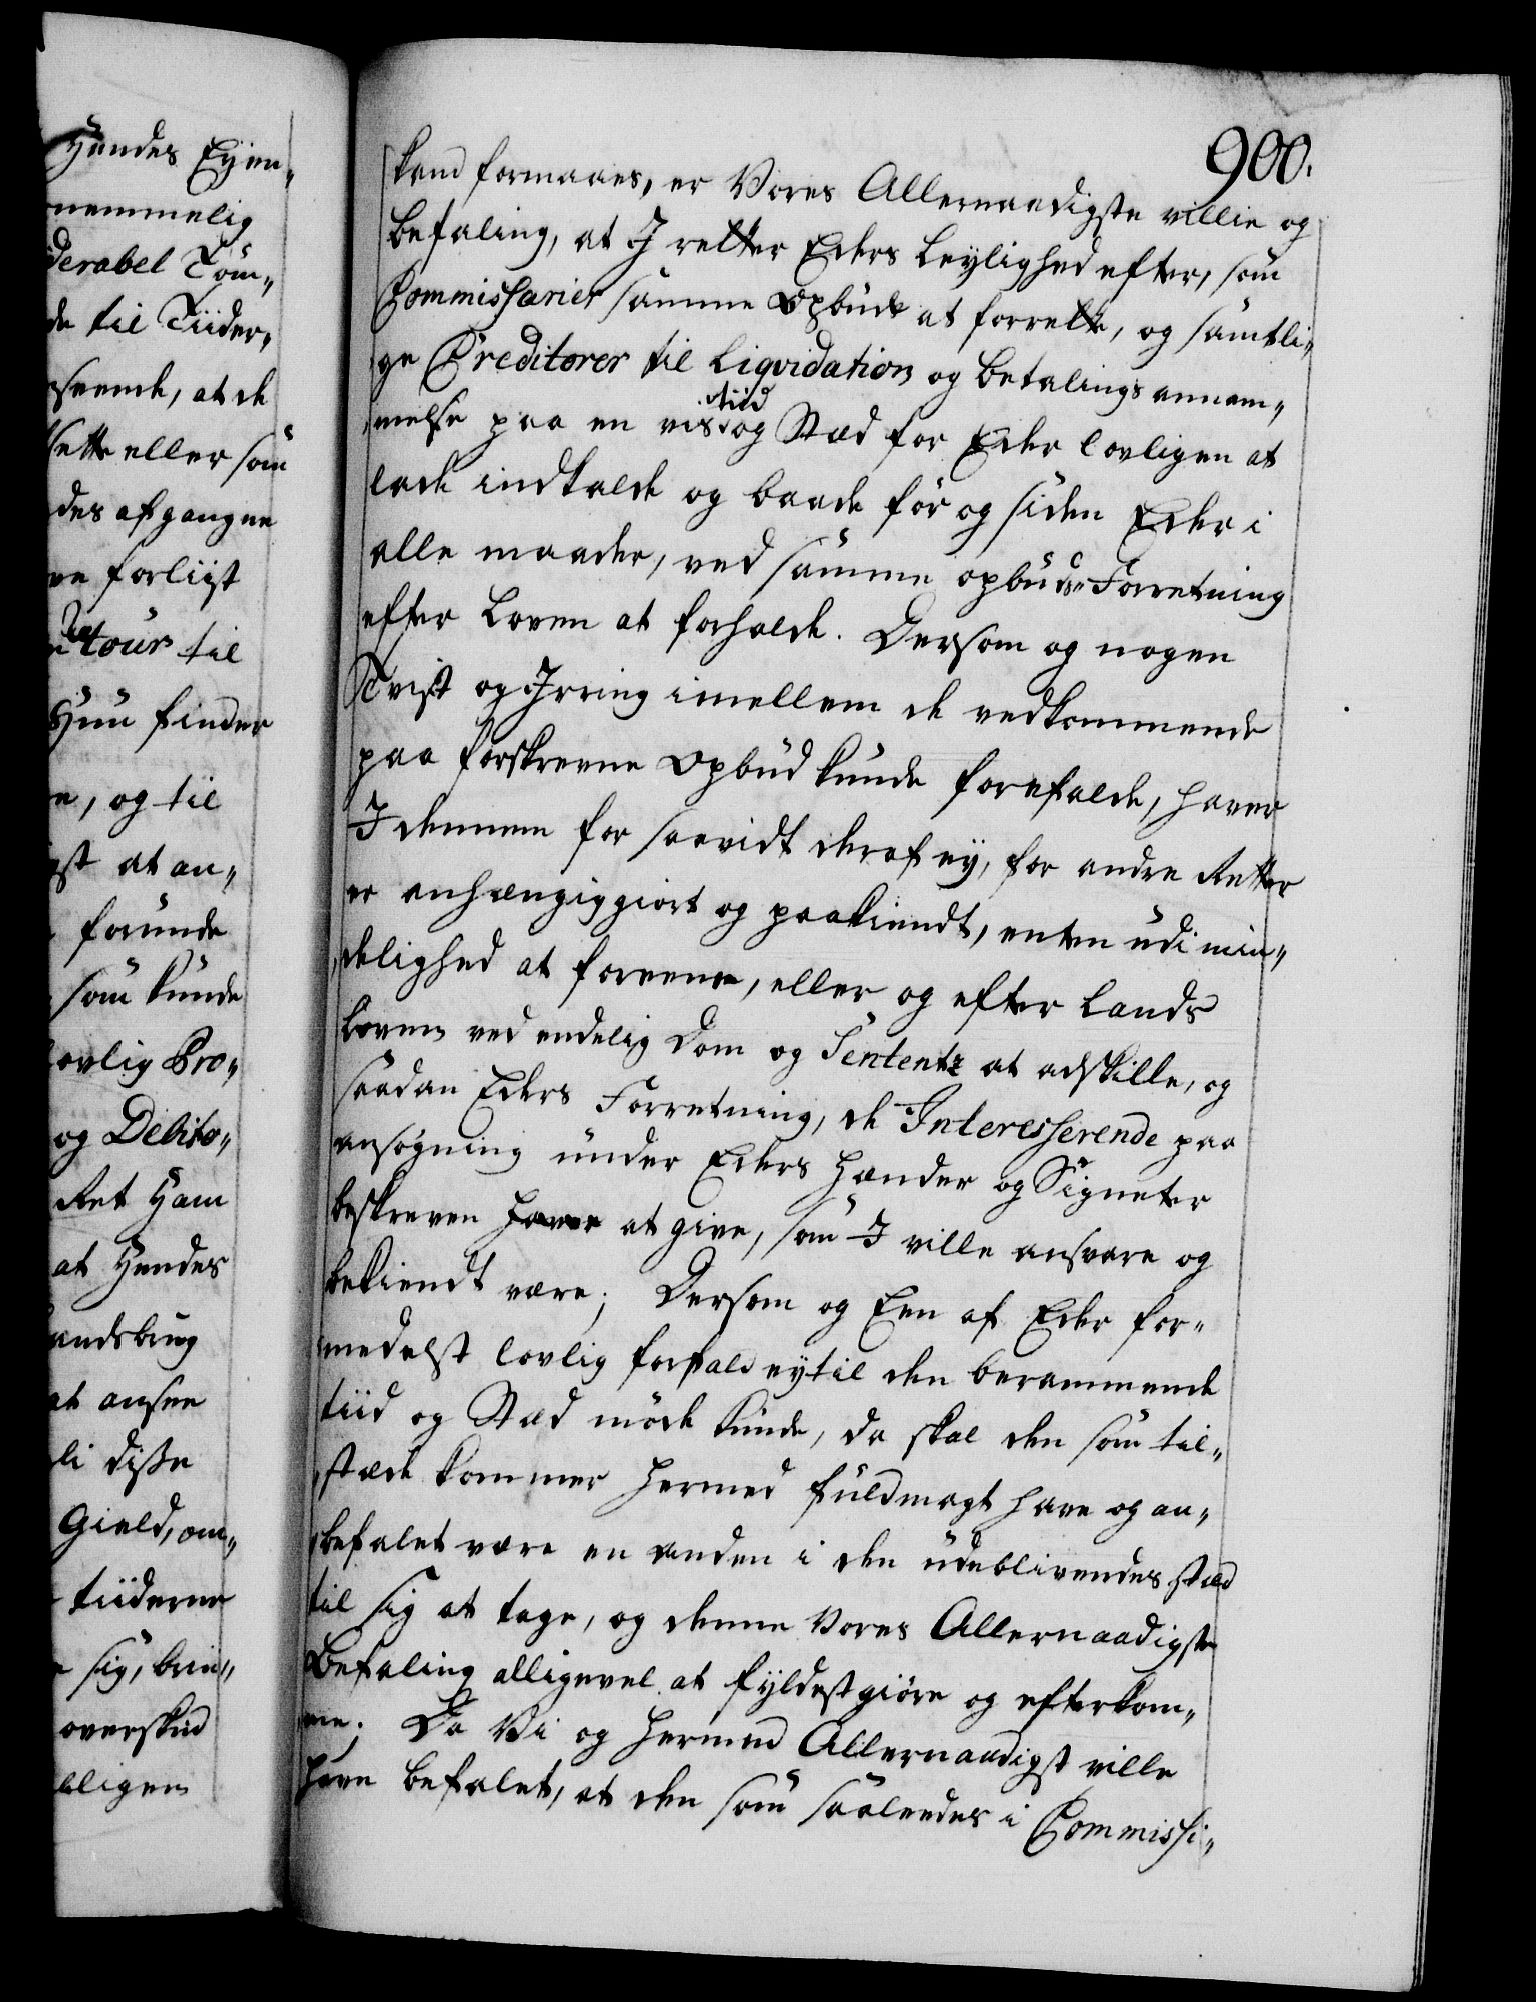 Hendes Eyen„
nemmelig
derabel Tøm„
de til Tiider,
seende, at de
sette eller som
des afgangne
ve forliist
Retour til
Huu finder
e, og til
gst at an„
forunde
som kunde
lovlig Pro„
og Debito„
Ret Ham
at Hendes
andsbrug
at ansee
li disse
Gield, om„
tiiderne
sig, brin„
overskud
lligen
900.
kand formaaes, er Vores Allernaadigste villie og
befaling, at I retter Eders Leylighed efter, som
Commissarier samme Opbud at forrette, og samtli„
ge Creditorer til Liqvidation og betalings annam„
melse paa en vis tiid og Stæd for Eder lovligen at
lade indkalde og baade før og siden Eder i
alle maader, ved samme opbuds Forretning
efter Loven at forholde. Dersom og nogen
Tvist og Irring imellem de vedkommende
paa forskrevne Opbud kunde forefalde, haver
I dennem for saavidt deraf ey, for andre Retter
er anhængiggiort og paakiendt, enten udi min„
delighed at foreene, eller og efter Lands
Loven ved endelig Dom og Sententz at adskille, og
saadan Eders Forretning, de Interesserende paa
ansøgning under Eders Hænder og Signeter
beskreven have at give, som I ville ansvare og
bekiendt være; Dersom og Een af Eder for„
medelst lovlig forfald ey til den berammende
tiid og Stæd møde kunde, da skal den som til„
stæde kommer hermed fuldmagt have og an„
befalet være en anden i den udeblivendes stæd
til sig at tage, og denne Vores Allernaadigste
Befaling alligevel at fyldestgiøre og efterkom„
me; Da Vi og hermed Allernaadigst ville
have befalet, at den som saaledes i Commissi„